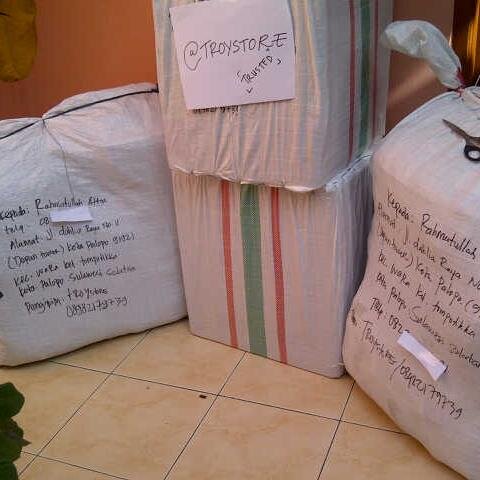 @TROYSTORE
TRUSTED
Kepada: Rahmatullah
telp. 08
Alamat: Jl. dahlia Raya No. 11
(Depan taman) Kota Palopo
Kec. Wara kel. tompotikka
kota Palopo Sulawesi selatan
Pengirim: TROYstore
08982179739
Kepada: Rahmatullah
Alamat: Jl. dahlia Raya No
(Depan taman) Kota Palopo
kec. wara kel. tompotikka
kota Palopo (Sulawesi selatan
Telp. 082
TROYSTORE/089821779739